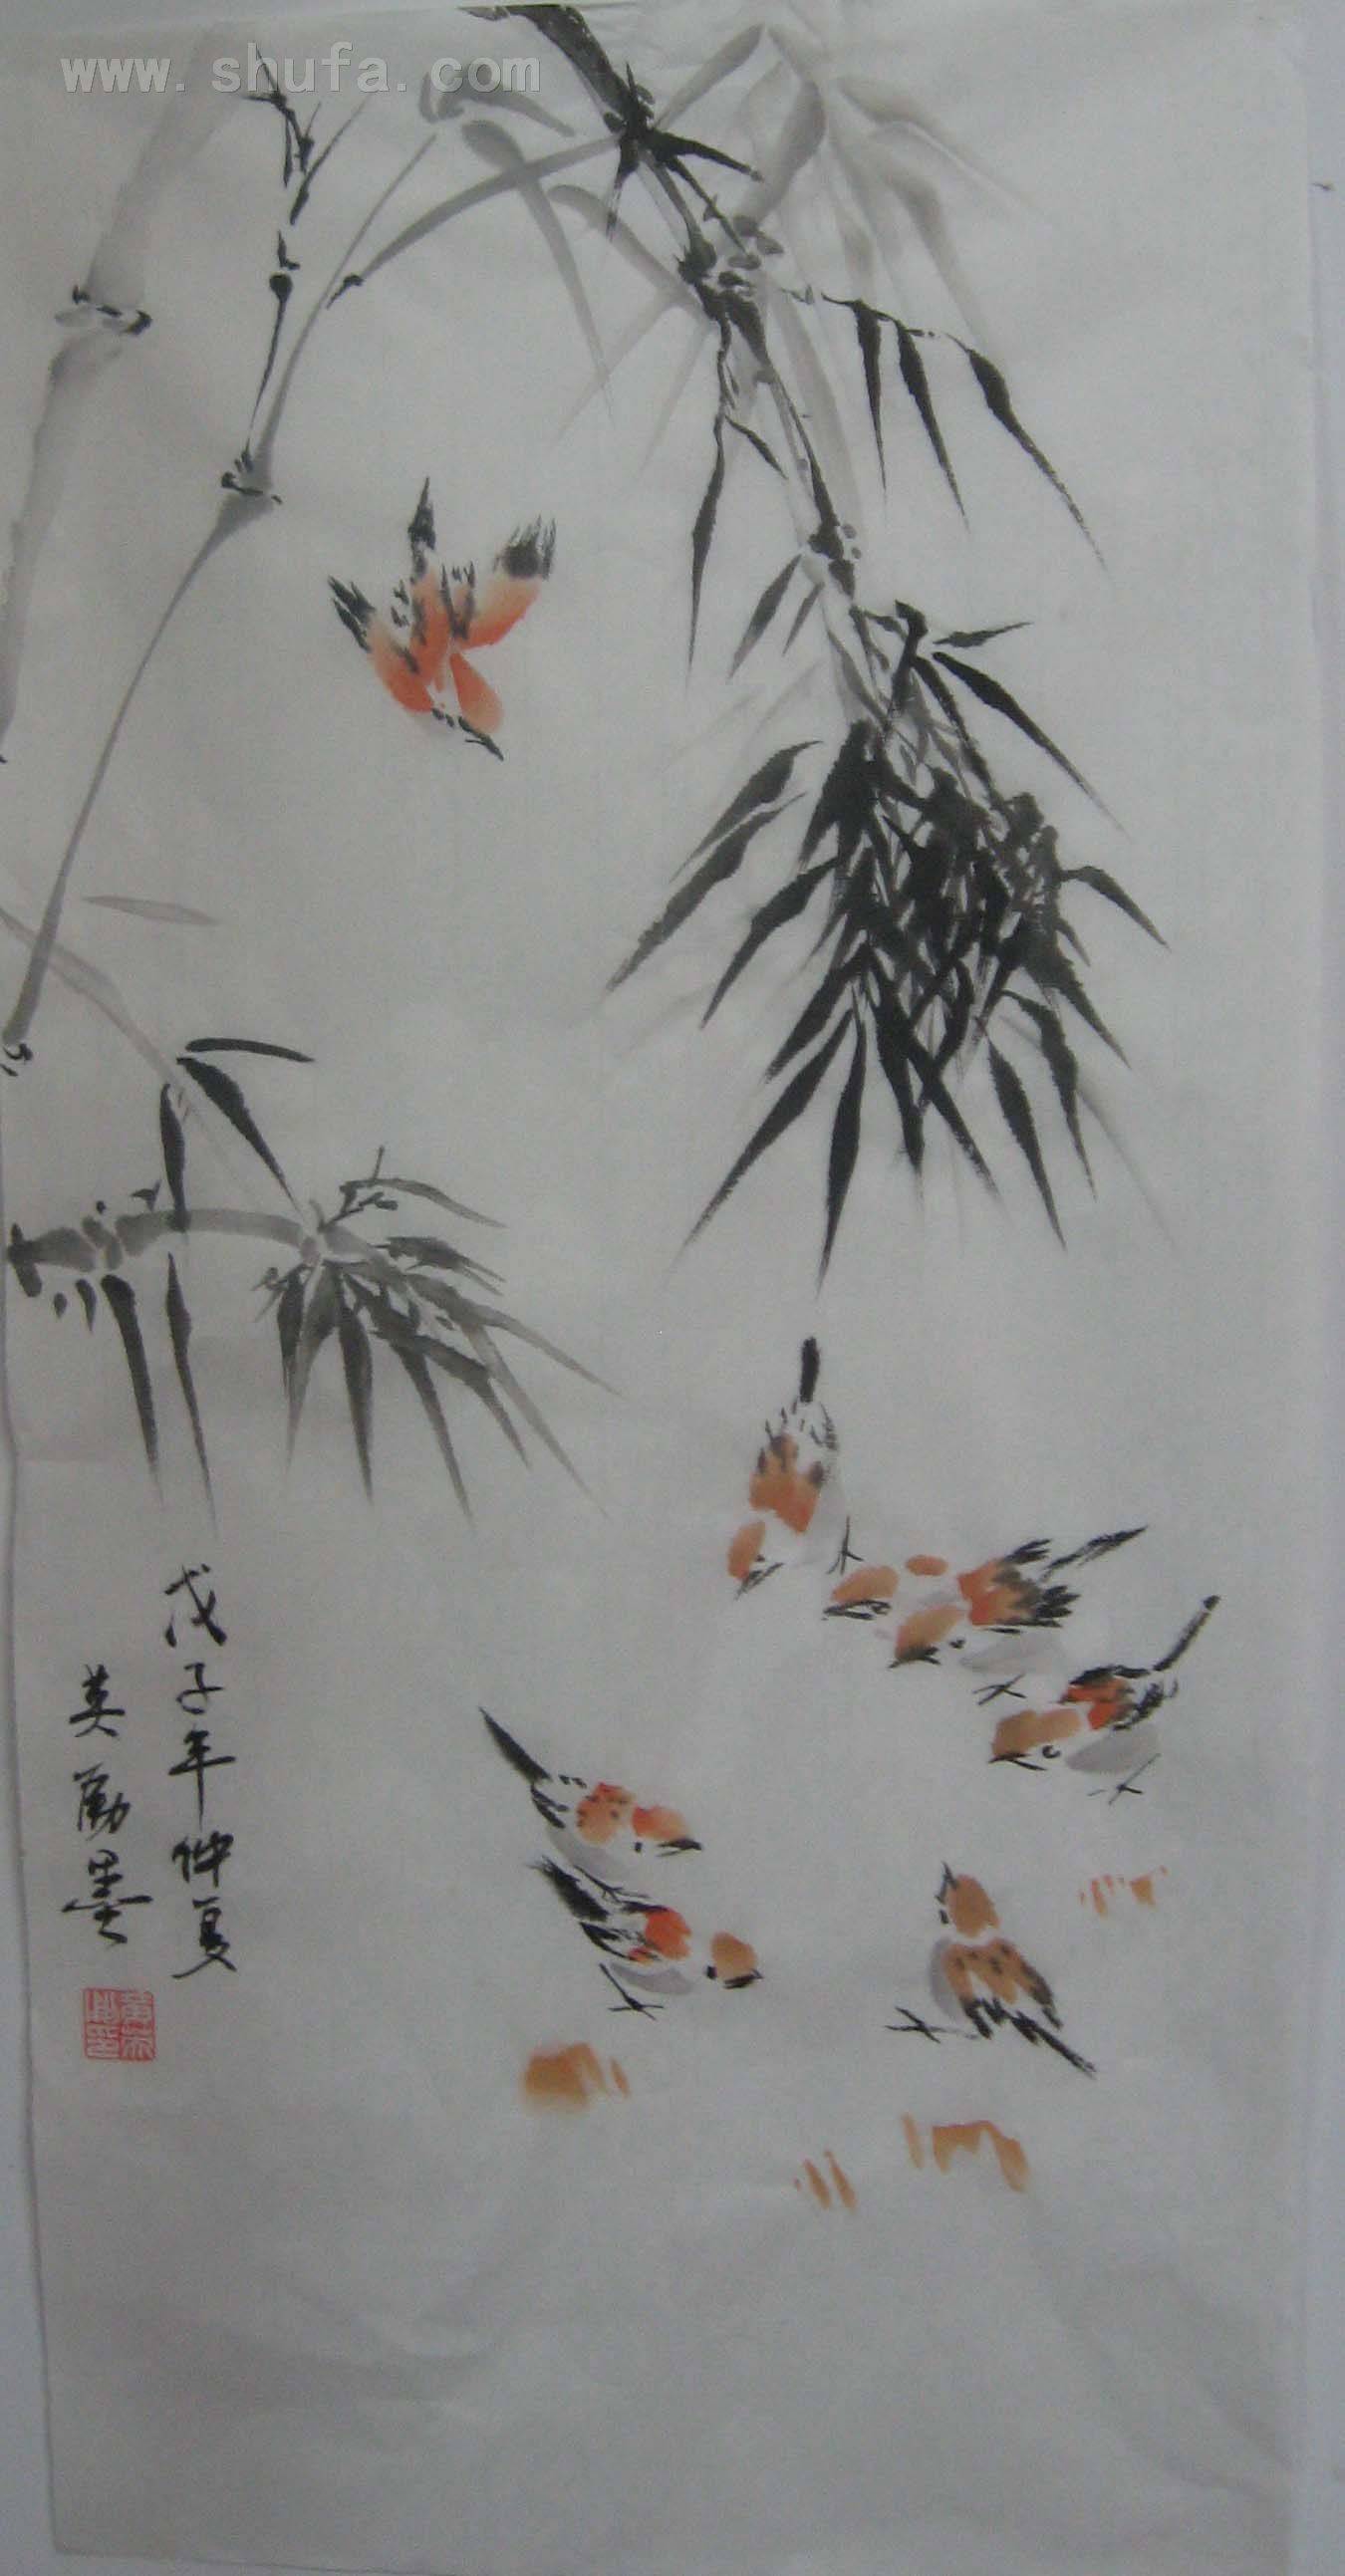 www.shufa.com
戊子年仲夏
英勋墨